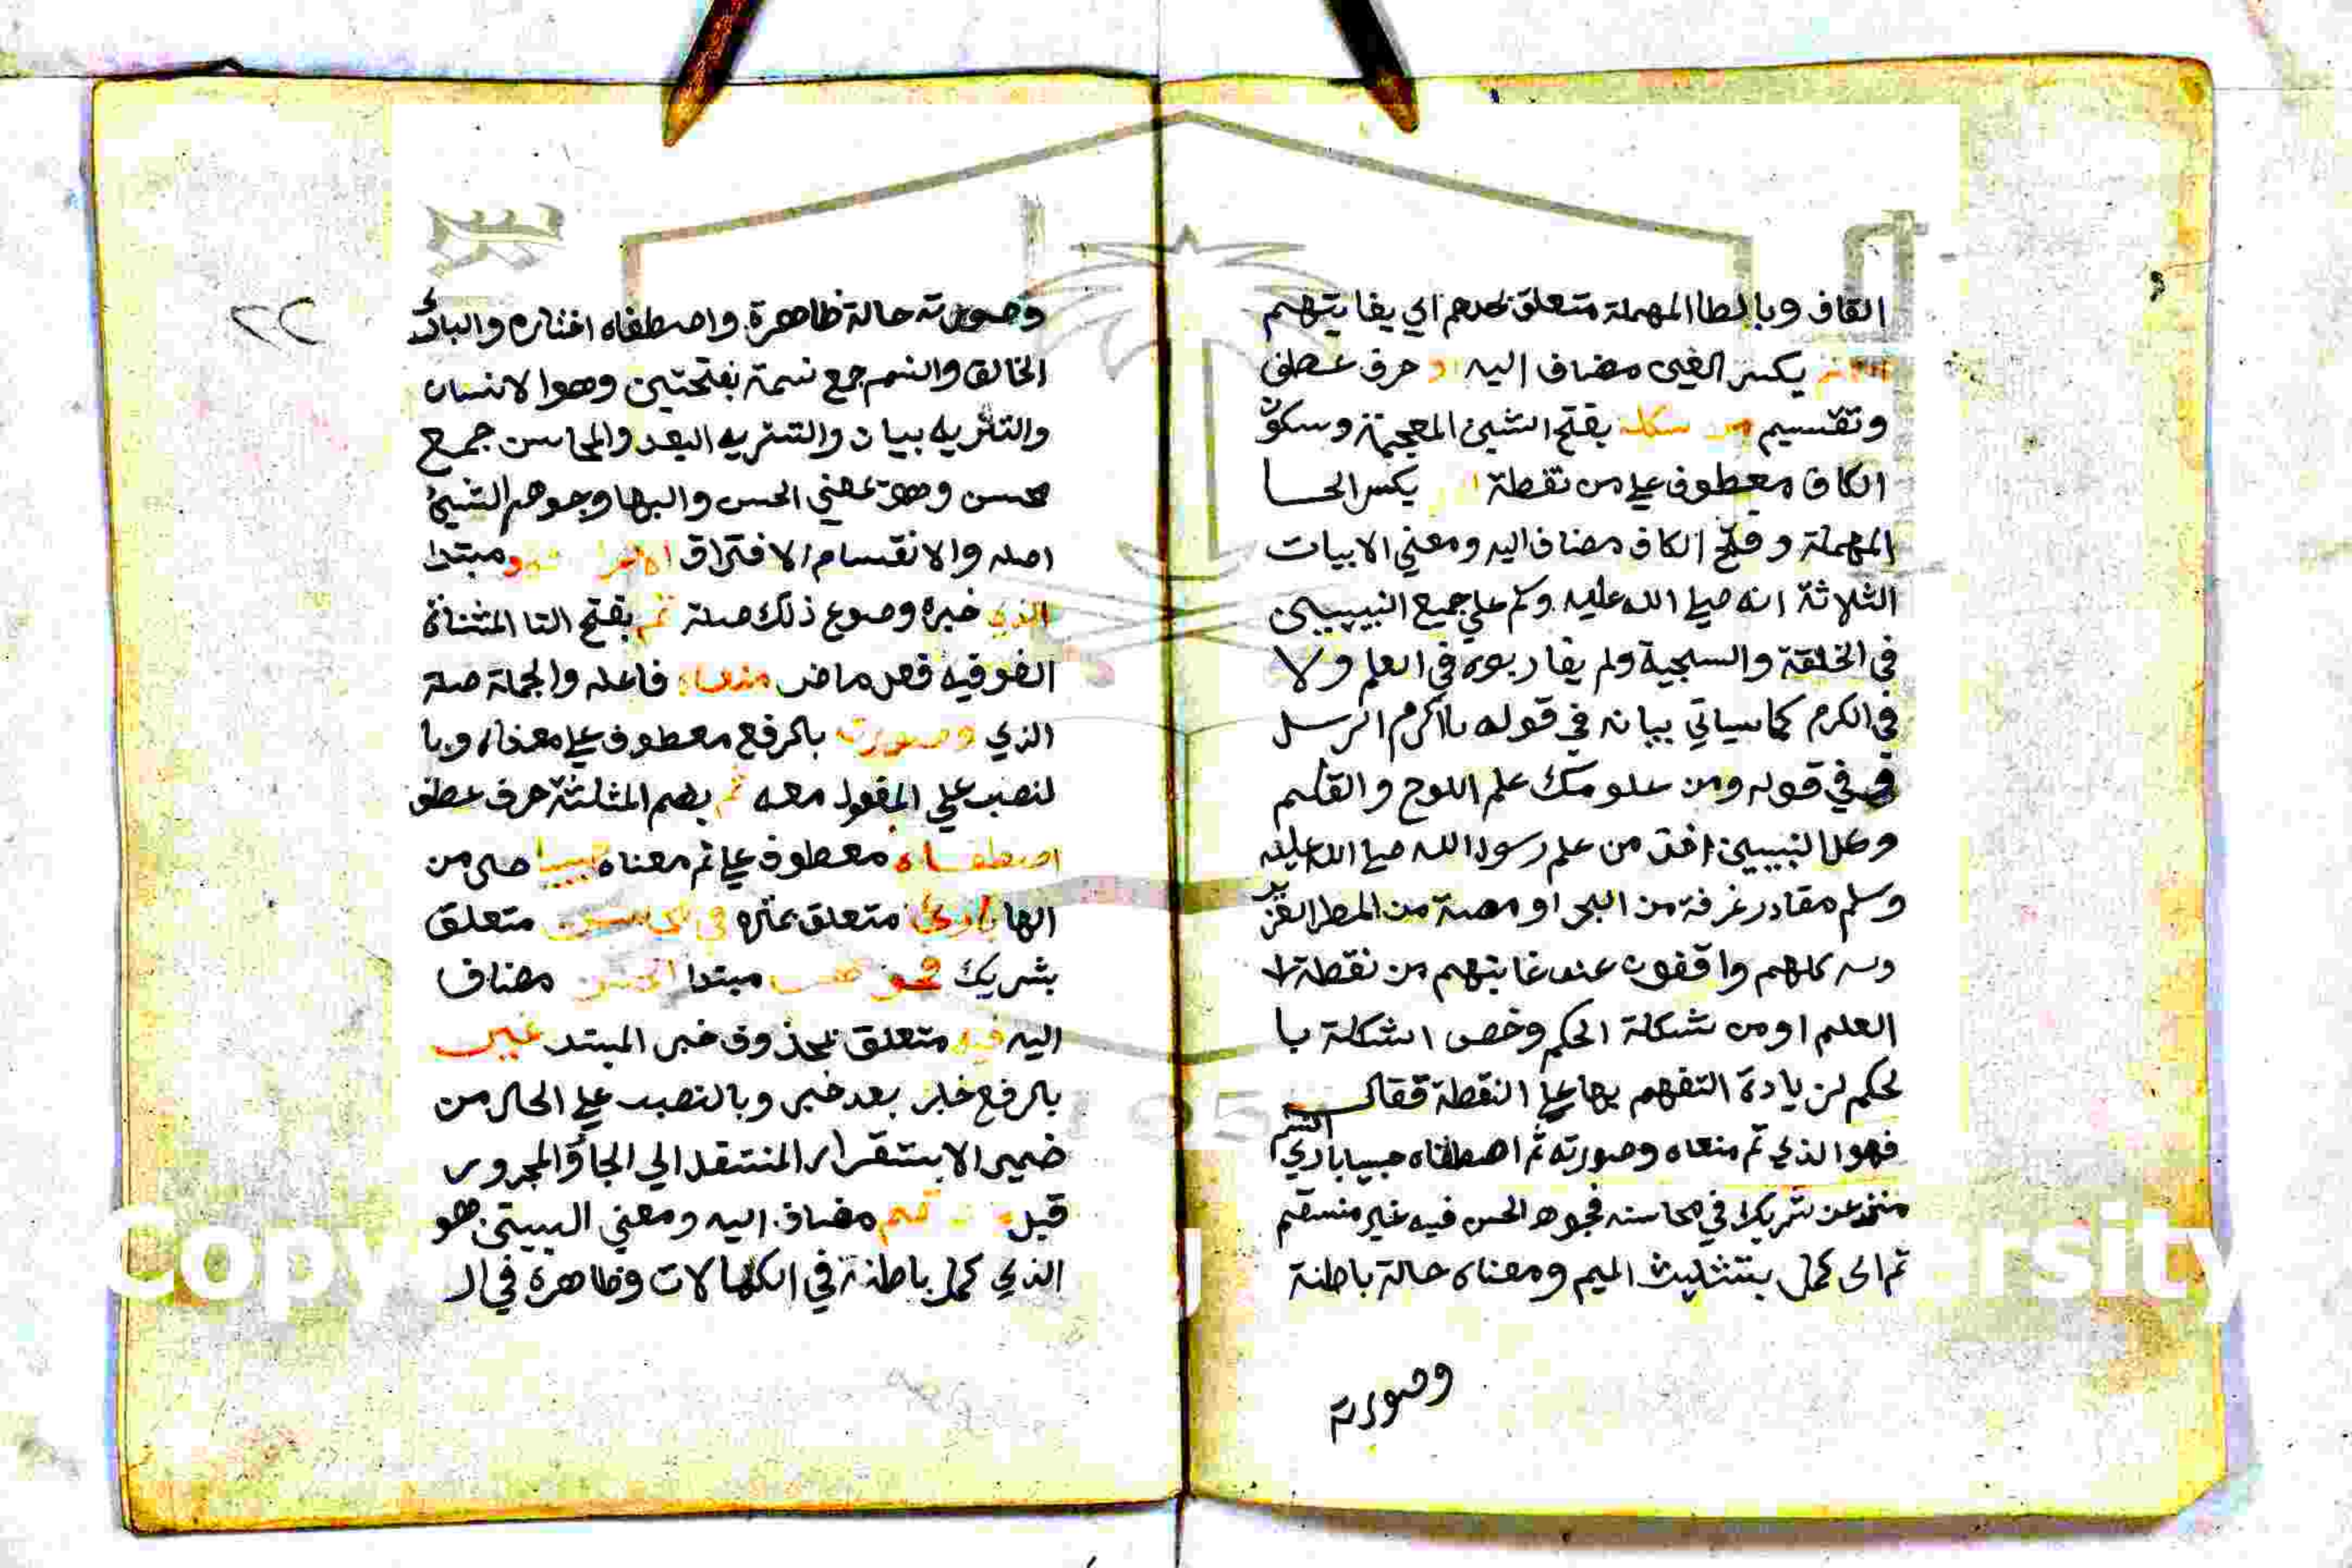 القاف وبالطا المهملة متعلق بحدهم اي بغايتهم
بكسر الغين مضاف اليه و حرف عطف
وتقسيم من شكله بفتح الشين المعجمة وسكون
الكاف معطوف علي من نقطة بكسر الحا
المهملة وفتح الكاف مضاف اليه ومعني الابيات
الثلاثة انه صلي الله عليه وكم علي جميع النبيين
في الخلقة والسجية ولم يقاربوه في العلم ولا
في الكرم كما سياتي بيانه في قوله يا اكرم الرسل
في قوله ومن علومك علم اللوح والقلم
وكل النبيين اخذ من علم رسول الله صلي الله عليه
وسلم مقادر غرفة من البحر او مصة من المطر الغزير
وسه كلهم واقفون عند غايتهم من نقطة لا
العلم او من شكلة الحكم وخص الشكلة با
لحكم لزيادة التفهم بها علي النقطة فقال
فهو الذي تم معناه وصورته ثم اصطفاه حبيبا باري النسم
منزه عن شريك في محاسنه فجوهر الحسن فيه غير منسقم
تم الى كمل بتثليث الميم ومعناه حالة باطنة
وصورته
٢٢
وصورته حالة ظاهرة واصطفاه اختاره والباري
الخالق والنسم جمع نسمة بفتحتين وهوا لانسان
والتنزيه بيان والتنزيه البعد والمحاسن جمع
محسن وهو بمعني الحسن والبها وجوهر الشيئ
اصله والانقسام الافتراق فهو مبتدا
الذي خبره وصوع ذلك صلة تم بفتح التا المثناة
الفوقيه فعل ماض معناه فاعله والجملة صلة
الذي وصورته بالرفع معطوف علي معناه وبا
لنصب علي المفعول معه ثم بضم المثلثة حرف عطف
اصطفاه معطوف علي تم معناه حبيبا حال من
الها باري متعلق بمنزه في محاسنه متعلق
بشريك فجوهر مبتدا الحسن مضاف
اليه فيه متعلق بمحذوف خبر المبتد غير
بالرفع خبر بعد خبر وبالنصب علي الحال من
ضمير الاستقرار المنتقل الي الجار والمجرور
قبل منقسم مضاف اليه ومعني البيتين هو
الذي كمل باطنة في الكمالات وظاهره في ال